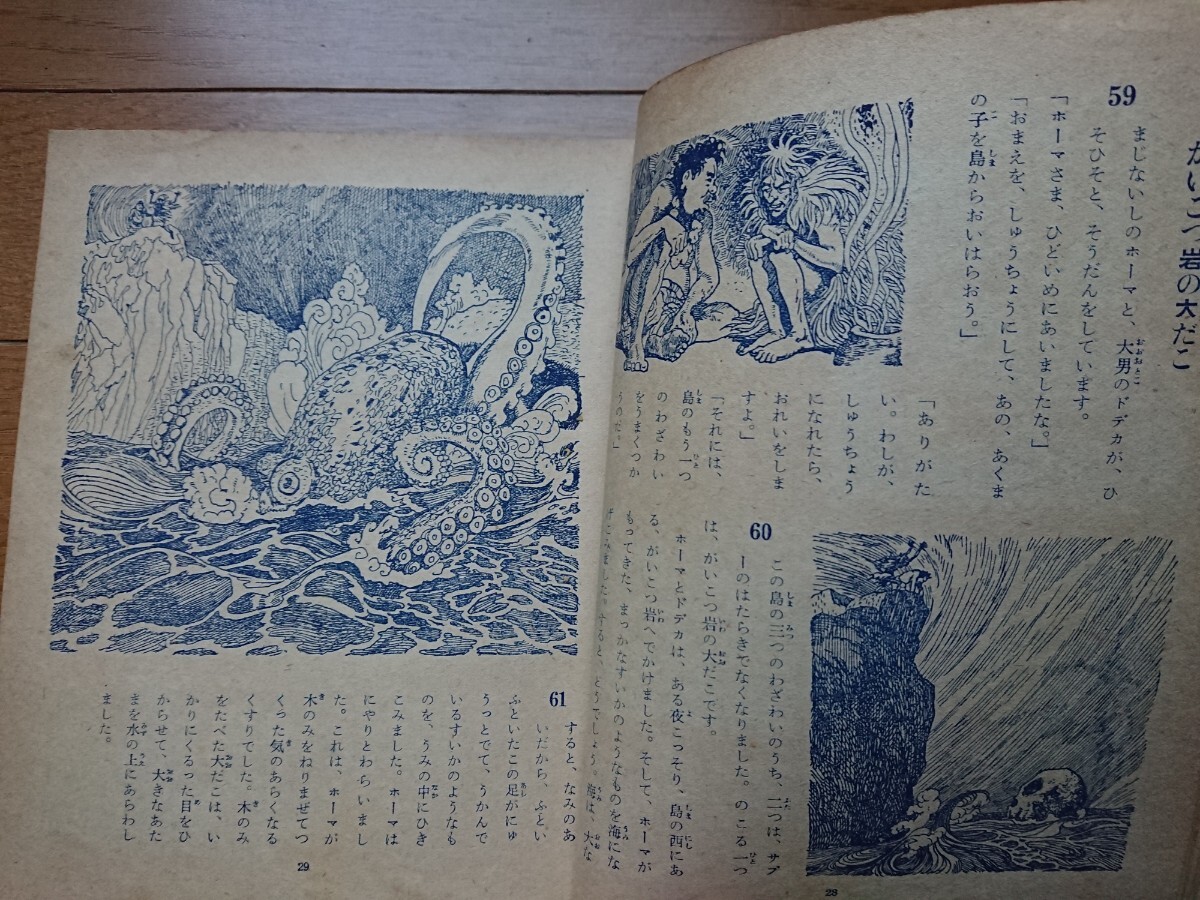 がいこつ岩の大だこ
59
まじないしのホーマと、大男のドデカが、ひ
そひそと、そうだんをしています。
「ホーマさま、ひどいめにあいましたな。」
「おまえを、しゅうちょうにして、あの、あくま
の子を島からおいはらおう。」
「ありがた
い。わしが、
しゅうちょう
になれたら、
おれいをしま
すよ。」
「それには、
島のもう一つ
のわざわい
をうまくつか
うのだ。」
60
この島の三つのわざわいのうち、二つは、サブ
ーのはたらきでなくなりました。のこる一つ
は、がいこつ岩の大だこです。
ホーマとドデカは、ある夜こっそり、島の西にあ
る、がいこつ岩へでかけました。そして、ホーマが
もってきた、まっかなすいかのようなものを海にな
げこみました。すると、どうでしょう。海は、大な
28
61
すると、なみのあ
いだから、ふとい
ふといたこの足がにゅ
うっとでて、うかんで
いるすいかのようなも
のを、うみの中にひき
こみました。ホーマは
にやりとわらいまし
た。これは、ホーマが
木のみをねりまぜてつ
くった気のあらくなる
くすりでした。木のみ
をたべた大だこは、い
かりにくるった目をひ
からせて、大きなあた
まを水の上にあらわし
ました。
29